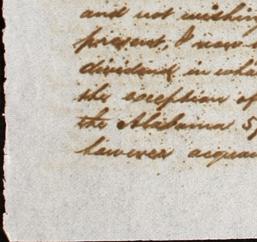 and not wishing
present, I now
dividend in
the exception of
the Alabama
however